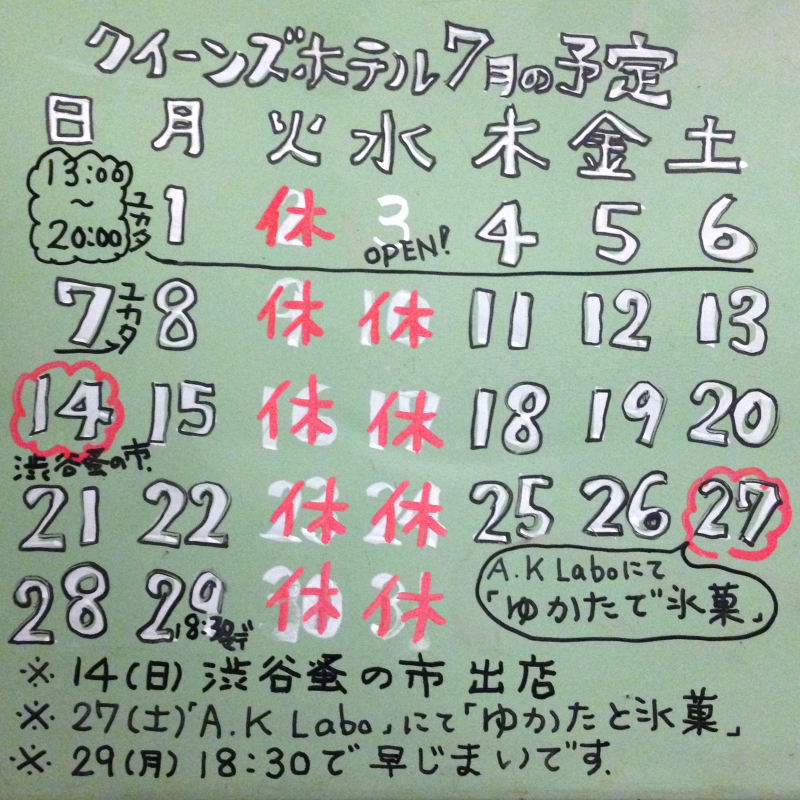 クイーンズホテル7月の予定
日 月 火 水 木 金 土
13:00
〜
20:00
ユカタ
1 休 3 4 5 6
OPEN!
7 ユカタ 8 休 休 11 12 13
14 15 休 休 18 19 20
渋谷蚤の市
21 22 休 休 25 26 27
28 29 休 休
18:30まで
A.K Laboにて
「ゆかたで氷菓」
※ 14(日) 渋谷蚤の市 出店
※ 27(土)「A.K Labo」にて「ゆかたと氷菓」
※ 29(月) 18:30で早じまいです.